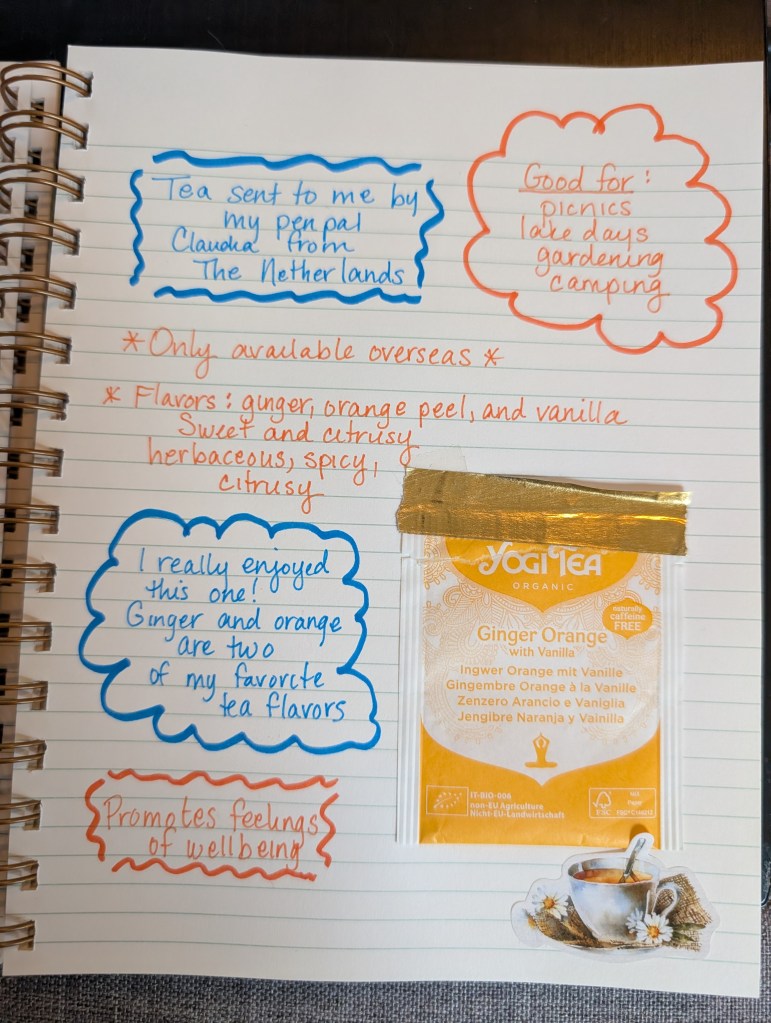 Tea sent to me by
my penpal
Claudia from
The Netherlands
Good for:
picnics
lake days
gardening
camping
*Only available overseas*
* Flavors: ginger, orange peel, and vanilla
Sweet and citrusy
herbaceous, spicy,
citrusy
I really enjoyed
this one!
Ginger and orange
are two
of my favorite
tea flavors
Promotes feelings
of wellbeing
YOGI TEA
ORGANIC
naturally
caffeine
FREE
Ginger Orange
with Vanilla
Ingwer Orange mit Vanille
Gingembre Orange à la Vanille
Zenzero Arancio e Vaniglia
Jengibre Naranja y Vainilla
IT-BIO-006
non-EU Agriculture
Nicht-EU-Landwirtschaft
FSC
MIX
Paper